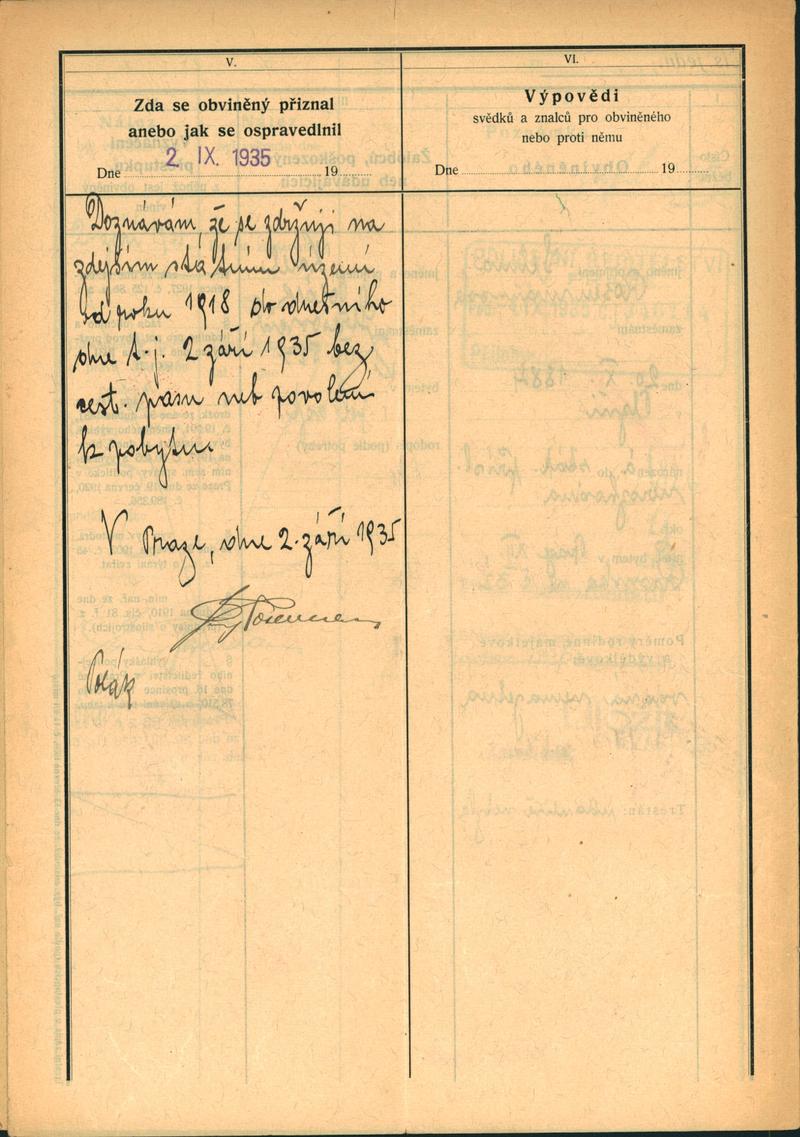 V.
Zda se obviněný přiznal
anebo jak se ospravedlnil
2. IX. 1935
Dne 19
Doznávám, že se zdržuji na
zdejším státním území
od roku 1918 do dnešního
dne t.j. 2 září 1935 bez
cest. pasu neb povolení
k pobytu
V Praze, dne 2. září 1935
Polák
VI.
Výpovědi
svědků a znalců pro obviněného
nebo proti němu
Dne 19